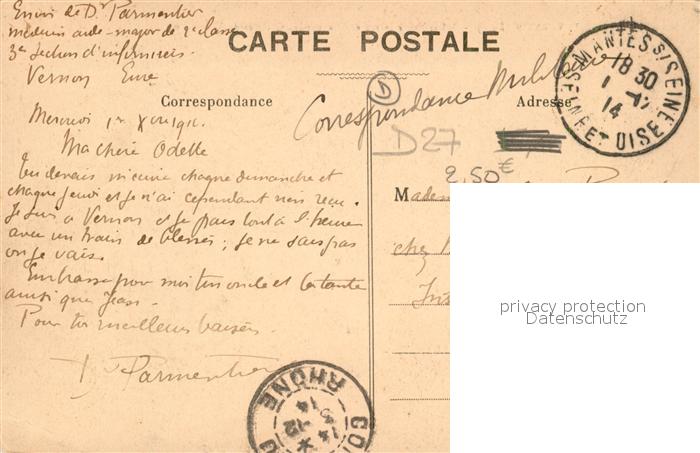 Envoi de Dr Parmentier
médecin aide-major de 2e classe
3e Section d'infirmiers
Vernon Eure
CARTE POSTALE
Correspondance
Adresse
Correspondance Militaire
5
D27
2,50€
MANTES S/SEINE
18 30
1 -12
14
SEINE ET OISE
Mercredi 1er
Ma chère Odette
Tu devais m'écrire chaque dimanche et
chaque jeudi et je n'ai cependant rien reçu.
Je suis à Vernon et je pars tout à l'heure
avec un train de blessés ; je ne sais pas
où je vais.
Embrasse pour moi ton oncle et ta tante
ainsi que
Pour toi meilleurs baisers.
Dr Parmentier
Madem
chez
privacy protection
Datenschutz
RHONE
14
5 -12
14